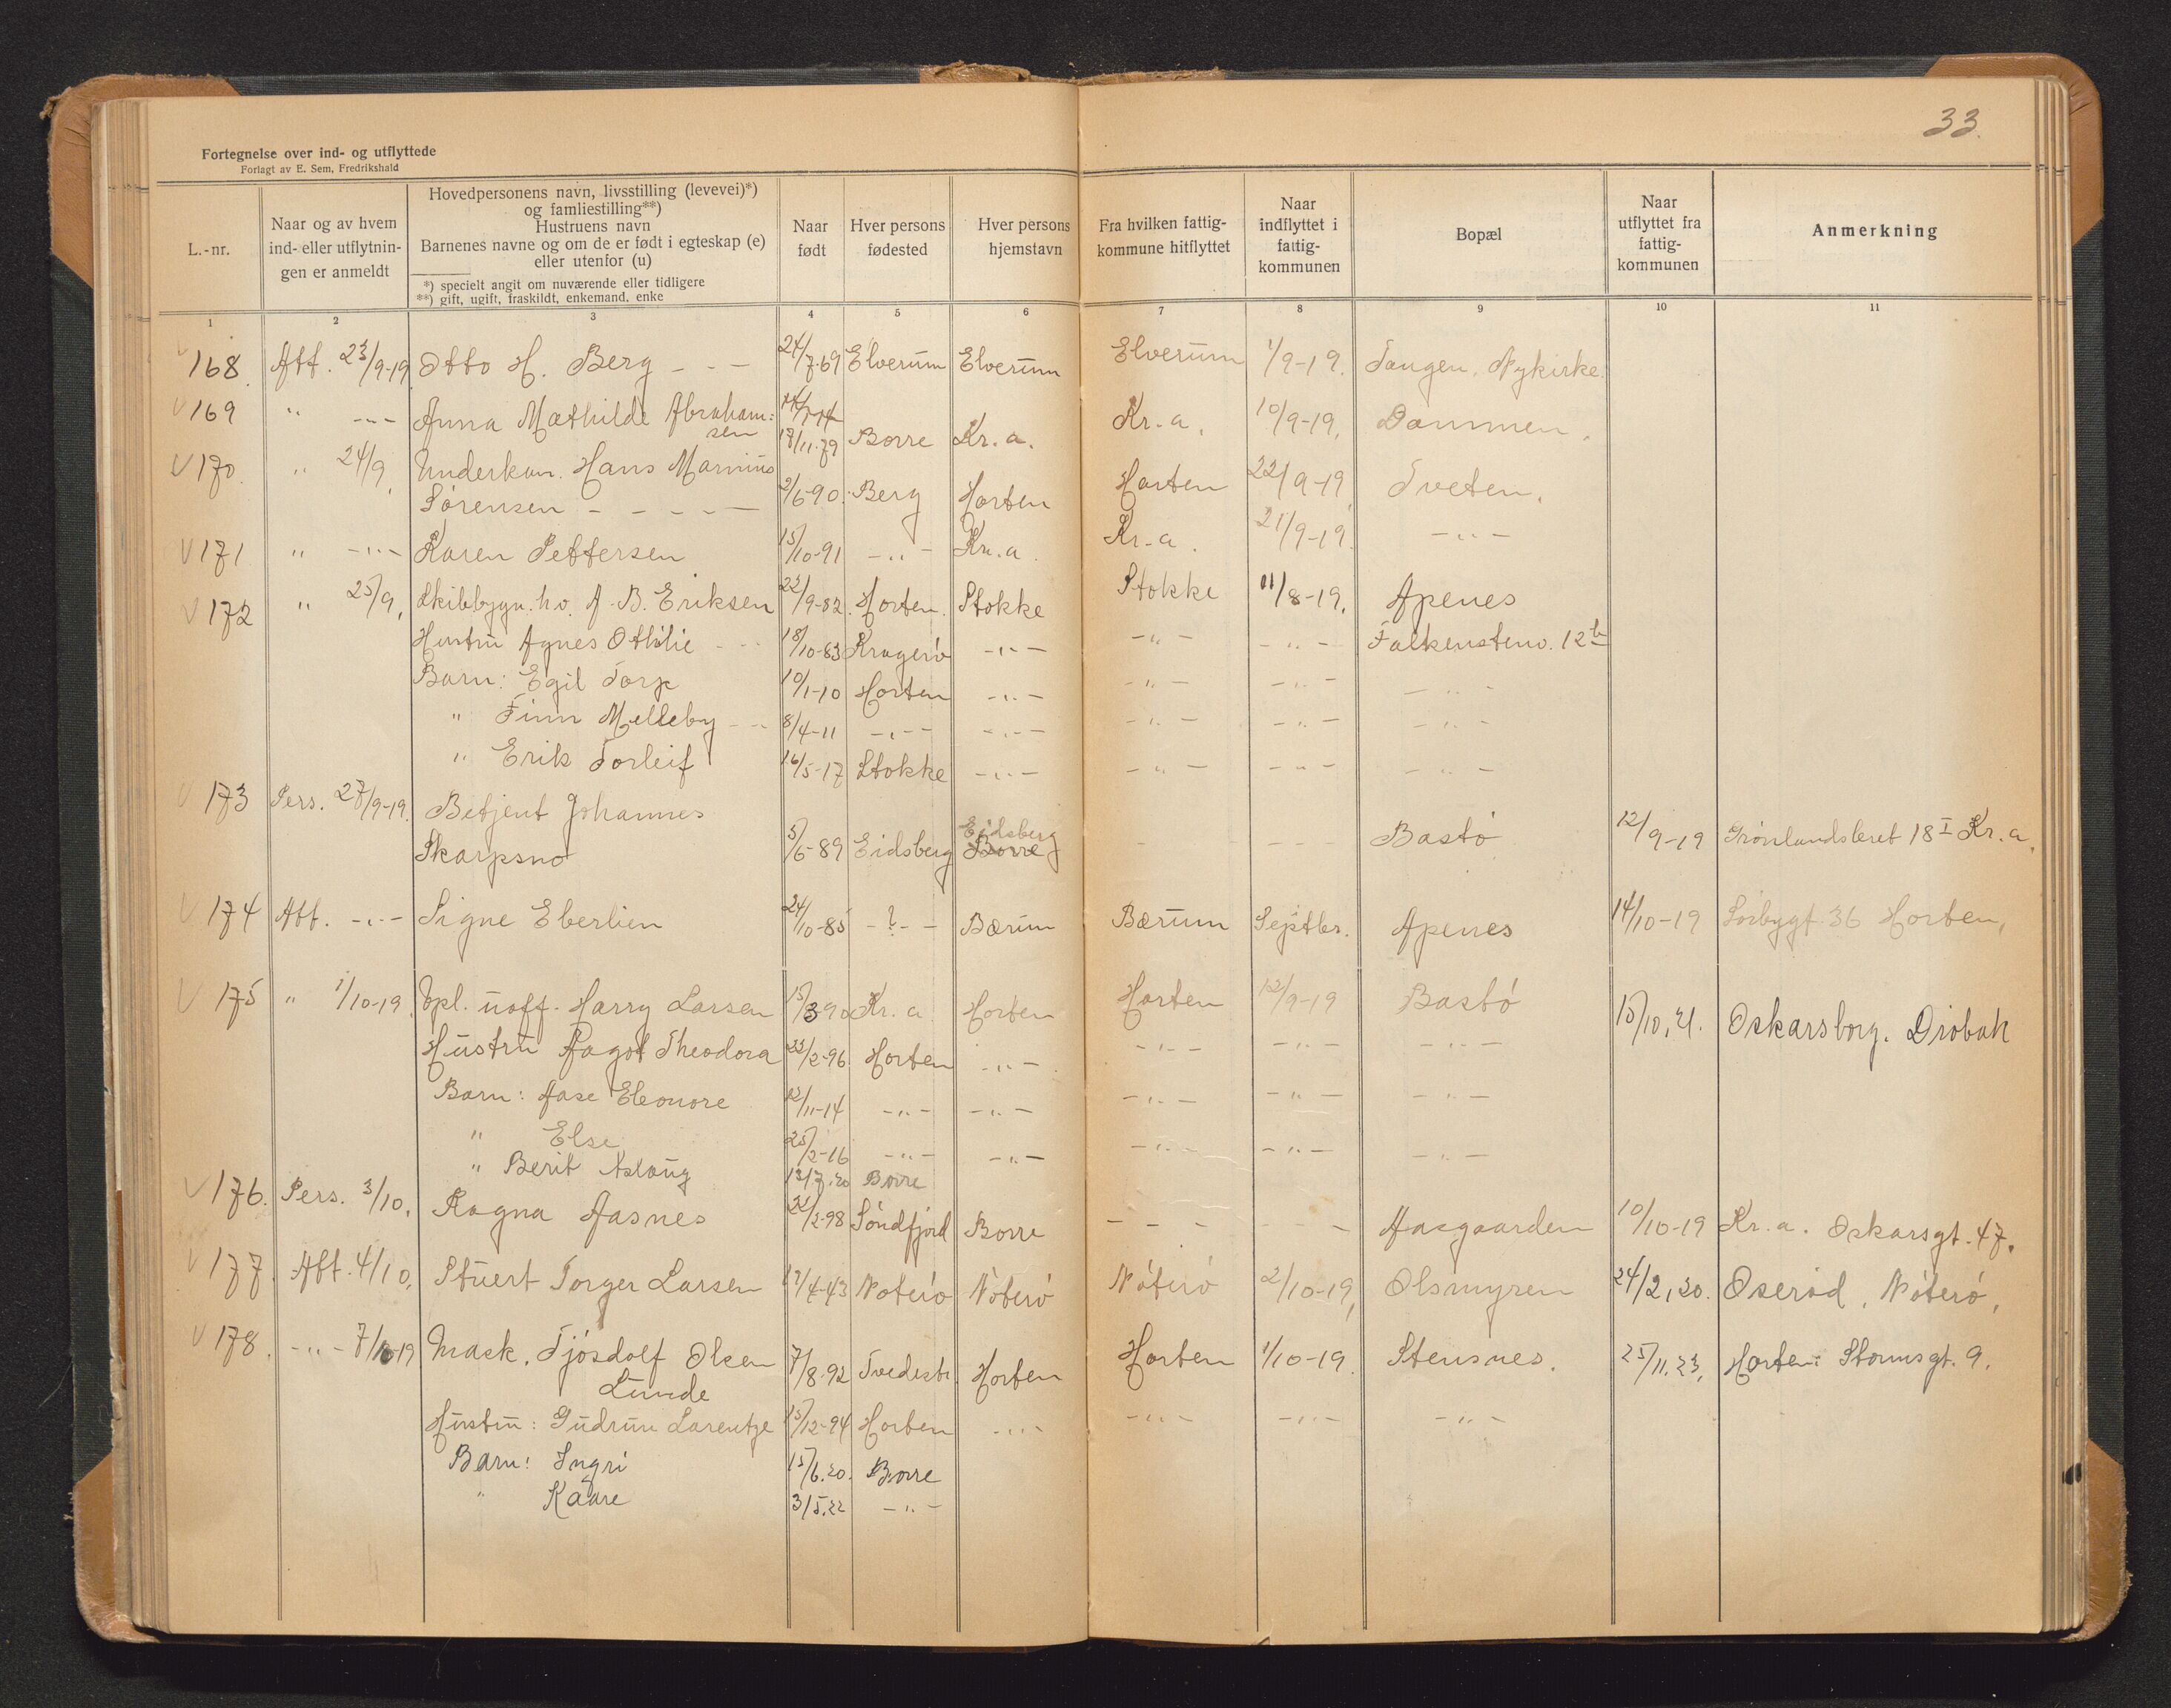 33.
Fortegnelse over ind- og utflyttede
Forlagt av E. Sem, Fredrikshald
L.-nr.
Naar og av hvem
ind- eller utflytnin-
gen er anmeldt
Hovedpersonens navn, livsstilling (levevei)*)
og famliestilling**)
Hustruens navn
Barnenes navne og om de er født i egteskap (e)
eller utenfor (u)
*) specielt angit om nuværende eller tidligere
**) gift, ugift, fraskildt, enkemand, enke
Naar
født
Hver persons
fødested
Hver persons
hjemstavn
Fra hvilken fattig-
kommune hitflyttet
Naar
indflyttet i
fattig-
kommunen
Bopæl
Naar
utflyttet fra
fattig-
kommunen
Anmerkning
1 2 3 4 5 6 7 8 9 10 11
168. Att. 23/9-19 Otto H. Berg - - - 24/7-69 Elverum Elverum Elverum 1/9-19. Tangen. Nykirke.
169 " -"- Anna Mathilde Abraham=
sen 17/11-79 Borre Kr.a. Kr.a. 10/9-19. Dammen.
170. " 24/9. Underkan. Hans Marinius
Sørensen - - - - - 2/6-90. Berg Horten Horten 22/9-19 Tveten.
171 " -"- Karen Pettersen 15/10-91 -"- Kr.a. Kr.a. 21/9-19. -"-
172 " 25/9. Skibbygn.h.v. A. B. Eriksen 22/9-82. Horten. Stokke Stokke 11/8-19. Apenes
Hustru Agnes Othilie - - 18/10-83 Kragerø -"- -"- -"- Falkenstenv. 12 b
Barn: Egil Torp 10/1-10 Horten -"- -"- -"- -"-
" Finn Melleby - - 8/4-11 -"- -"- -"- -"- -"-
" Erik Torleif 16/5-17 Stokke -"- -"- -"- -"-
173 Pers. 27/9-19. Betjent Johannes
Skarpsno 5/6-89 Eidsberg Eidsberg Borre - - - - Bastø 12/9-19 Grønlandsleret 18 I Kr.a.
174 Att. -"- Signe Eberlien 24/10-85 - ? - - Bærum Bærum Septbr. Apenes 14/10-19 Sørbygt. 36 Horten.
175 " 1/10-19. Vpl. uoff. Harry Larsen 15/3-90 Kr.a. Horten Horten 12/9-19 Bastø 15/10.21. Oskarsborg. Drøbak
Hustru Aagot Theodora 23/2-96. Horten -"- -"- -"- -"-
Barn: Aase Eleonore 12/11-14 -"- -"- -"- -"- -"-
" Else 25/2-16 -"- -"- -"- -"- -"-
" Berit Aslaug 13/7.20 Borre
176. Pers. 3/10. Ragna Aasnes 22/2-98 Søndfjord Borre - - - - - - Aasgaarden 10/10-19 Kr.a. Oskarsgt. 47.
177. Att. 4/10. Stuert Torger Larsen 17/4-43 Nøterø Nøterø Nøterø 2/10-19. Olsmyren 24/2.20. Oserød, Nøterø.
178. -"- 7/10-19 Mask. Tjøsdolf Olsen
Lunde 7/8-92 Tvedestr. Horten Horten 1/10-19. Stensnes. 25/11.23. Horten: Stormsgt. 9.
Hustru: Gudrun Larentze 15/12-94 Horten -"- -"- -"- -"-
Barn: Ingri 15/6.20. Borre
" Kaare 3/5.22 -"-